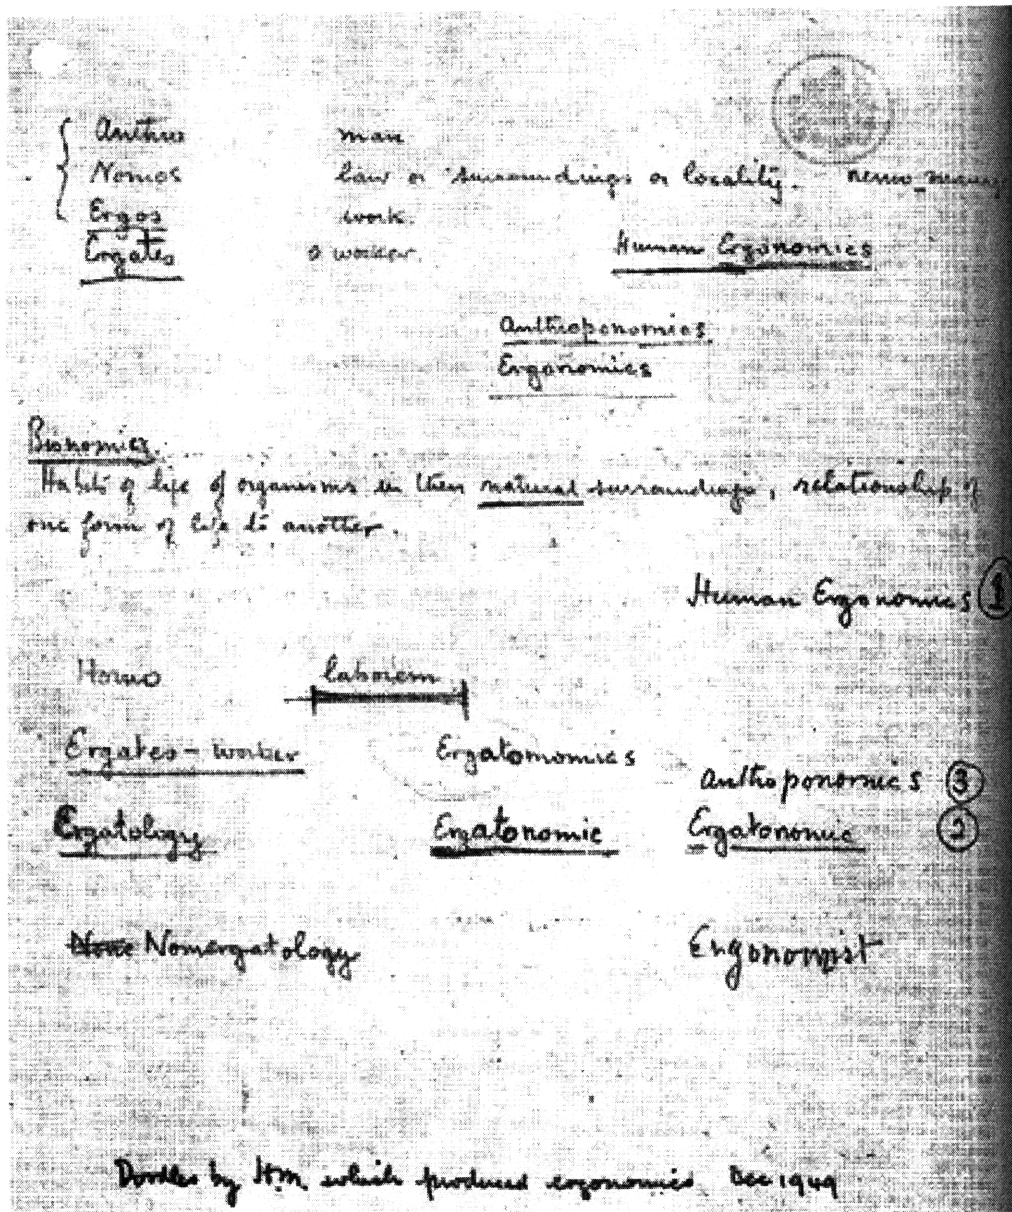 Anthro man
Nomos law or surroundings or locality.
Ergos work.
Ergates a worker. Human Ergonomics
Anthroponomics
Ergonomics
Bionomics.
Habits of life of organisms in their natural surroundings, relationship of
one form of life to another.
Human Ergonomics 1
Homo laborem
Ergates - worker Ergatonomics
Anthroponomics 3
Ergatology Ergatonomic Ergatonomic 2
Nomergatology Ergonomist
Doodles by H.M. which produced ergonomics Dec 1949